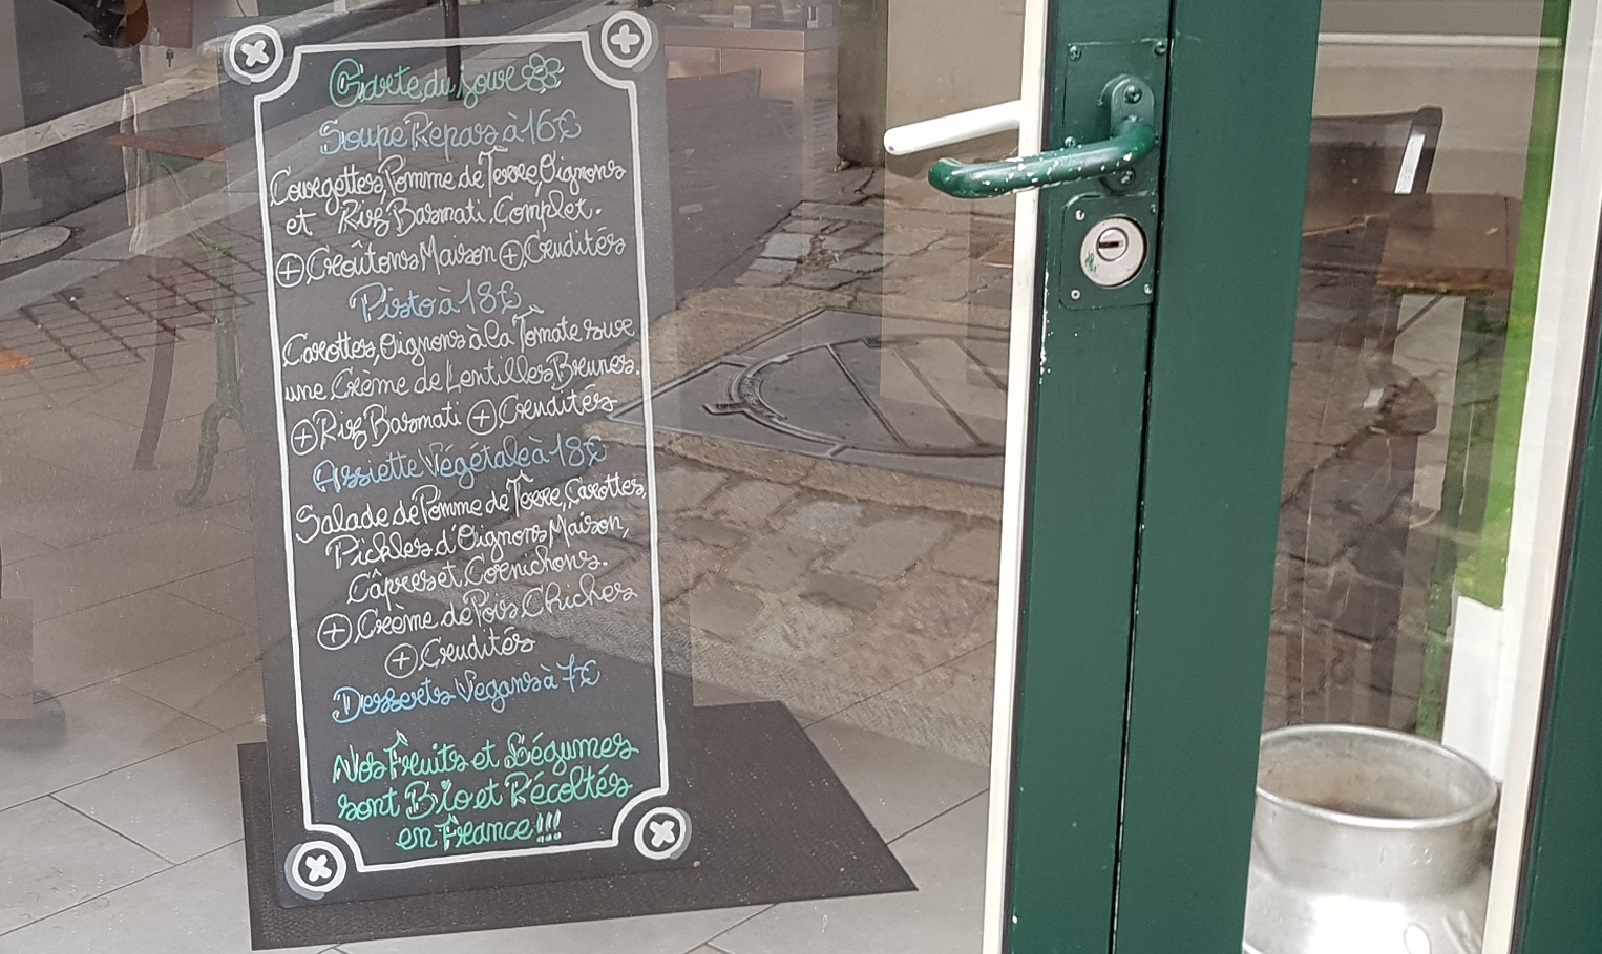 Carte du jour
Soupe Repas à 16€
Courgettes, Pomme de Terre, Oignons
et Riz Basmati Complet.
+ Croûtons Maison + Crudités
Pisto à 18€
Carottes, Oignons à la Tomate sur
une Crème de Lentilles Brunes.
+ Riz Basmati + Crudités
Assiette Végétale à 18€
Salade de Pomme de Terre, Carottes,
Pickles d'Oignons Maison,
Câpres et Cornichons.
+ Crème de Pois Chiches
+ Crudités
Desserts Vegans à 7€
Nos Fruits et Légumes
sont Bio et Récoltés
en France !!!